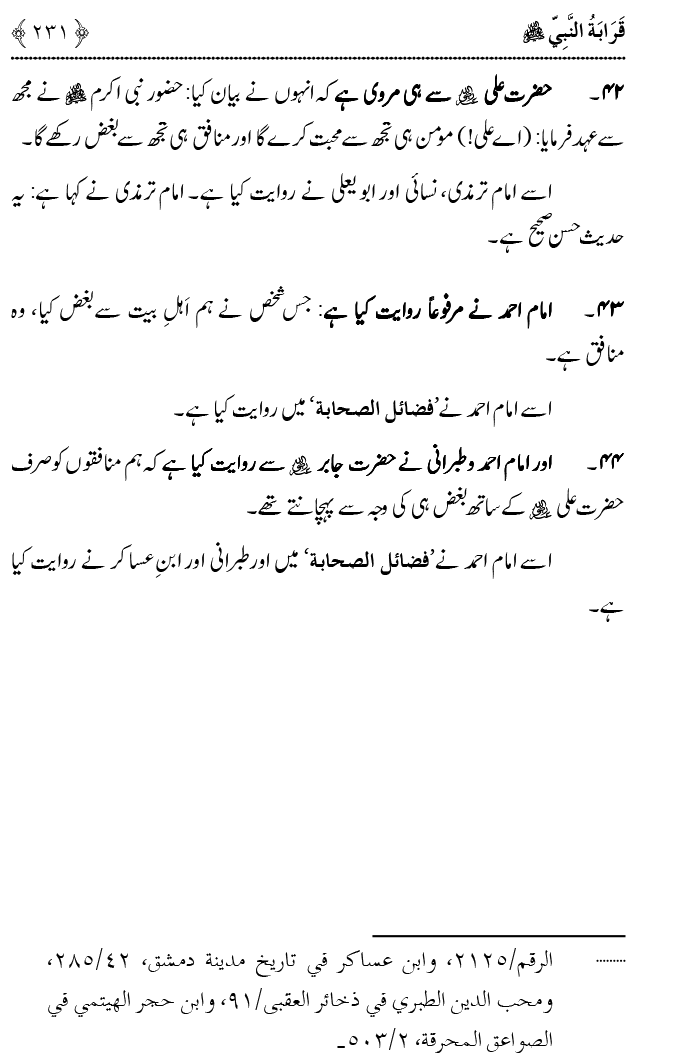 قَرَابَةُ النَّبِيِّ ﷺ ﴿٢٣١﴾
۴۲۔ حضرت علی ؓ سے ہی مروی ہے کہ انہوں نے بیان کیا: حضور نبی اکرم ﷺ نے مجھ
سے عہد فرمایا: (اے علی!) مؤمن ہی تجھ سے محبت کرے گا اور منافق ہی تجھ سے بغض رکھے گا۔
اسے امام ترمذی، نسائی اور ابو یعلی نے روایت کیا ہے۔ امام ترمذی نے کہا ہے: یہ
حدیث حسن صحیح ہے۔
۴۳۔ امام احمد نے مرفوعاً روایت کیا ہے: جس شخص نے ہم اَہلِ بیت سے بغض کیا، وہ
منافق ہے۔
اسے امام احمد نے ’فضائل الصحابة‘ میں روایت کیا ہے۔
۴۴۔ اور امام احمد و طبرانی نے حضرت جابر ؓ سے روایت کیا ہے کہ ہم منافقوں کو صرف
حضرت علی ؓ کے ساتھ بغض ہی کی وجہ سے پہچانتے تھے۔
اسے امام احمد نے ’فضائل الصحابة‘ میں اور طبرانی اور ابنِ عساکر نے روایت کیا
ہے۔
......... الرقم/٢١٢٥، وابن عساكر في تاريخ مدينة دمشق، ٤٢/٢٨٥،
ومحب الدين الطبري في ذخائر العقبى/٩١، وابن حجر الهيتمي في
الصواعق المحرقة، ٢/٥٠٣۔